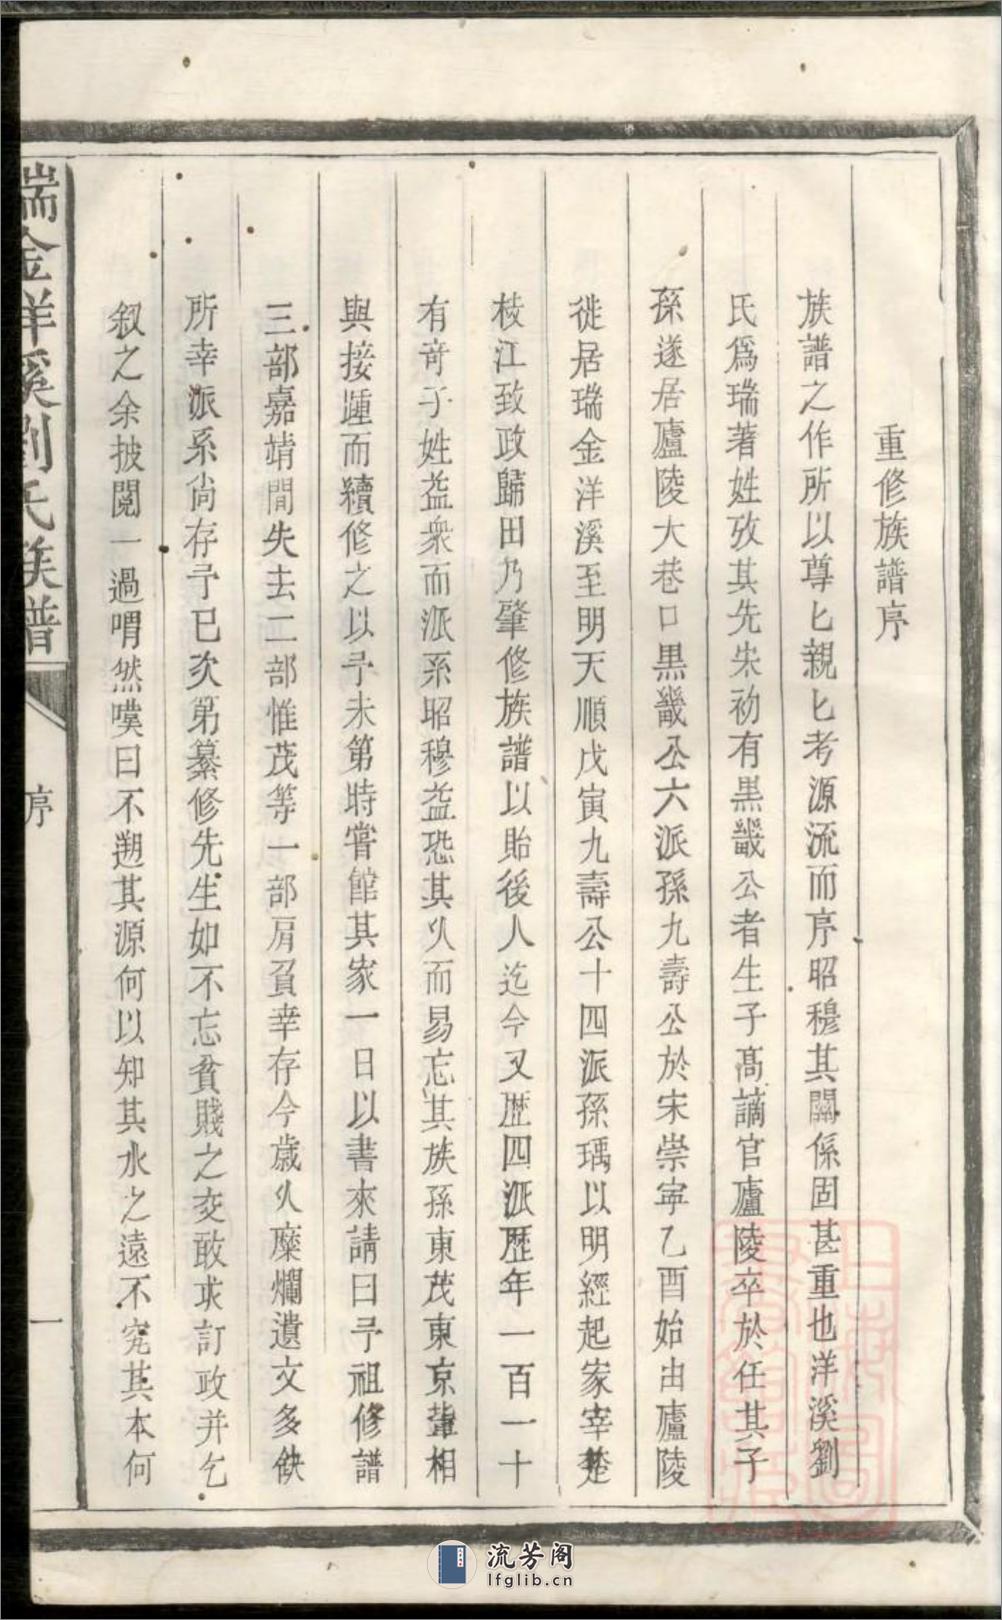 重修族譜序
族譜之作所以尊匕親匕考源流而序昭穆其關係固甚重也洋溪劉
氏爲瑞著姓攷其先宋初有黑畿公者生子高謫官廬陵卒於任其子
孫遂居廬陵大巷口黑畿公六派孫九壽公於宋崇寧乙酉始由廬陵
徙居瑞金洋溪至明天順戊寅九壽公十四派孫瑀以明經起家宰楚
枝江致政歸田乃肇修族譜以貽後人迄今又歷四派歷年一百一十
有竒子姓益衆而派系昭穆益恐其乆而易忘其族孫東茂東京輩相
與接踵而續修之以予未第時嘗館其家一日以書來請曰予祖修譜
三部嘉靖間失去二部惟茂等一部肩負幸存今歲乆糜爛遺文多缺
所幸派系尚存予已次第纂修先生如不忘貧賤之交敢求訂政并乞
叙之余披閱一過喟然嘆曰不遡其源何以知其水之遠不究其本何
瑞金洋溪劉氏族譜
序
一
流芳阁
lfglib.cn